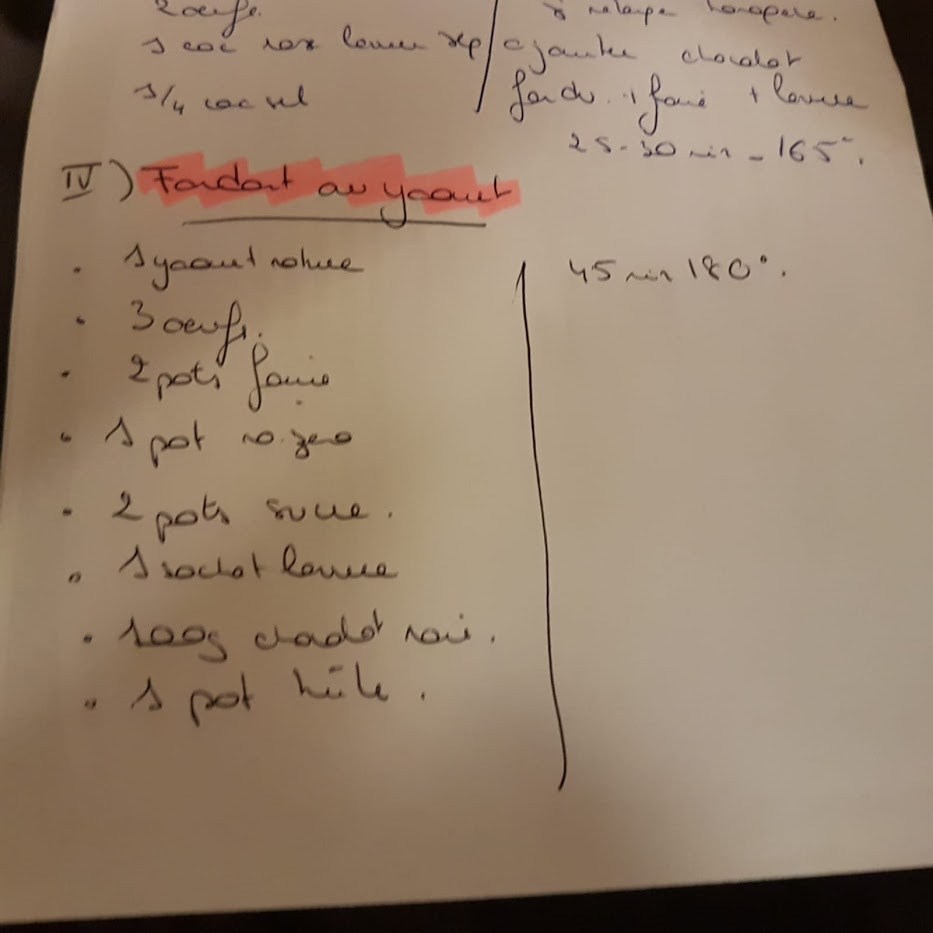 2 oeufs.
1 cac
levure
1/4 cac sel
mélange homogène.
ajouter chocolat
fondu + farine + levure
25-30 min - 165°.
IV) Fondant au yaourt
. 1 yaourt nature
. 3 oeufs.
. 2 pots farine
. 1 pot
. 2 pots sucre.
. 1 sachet levure
. 100g chocolat noir.
. 1 pot huile.
45 min 180°.